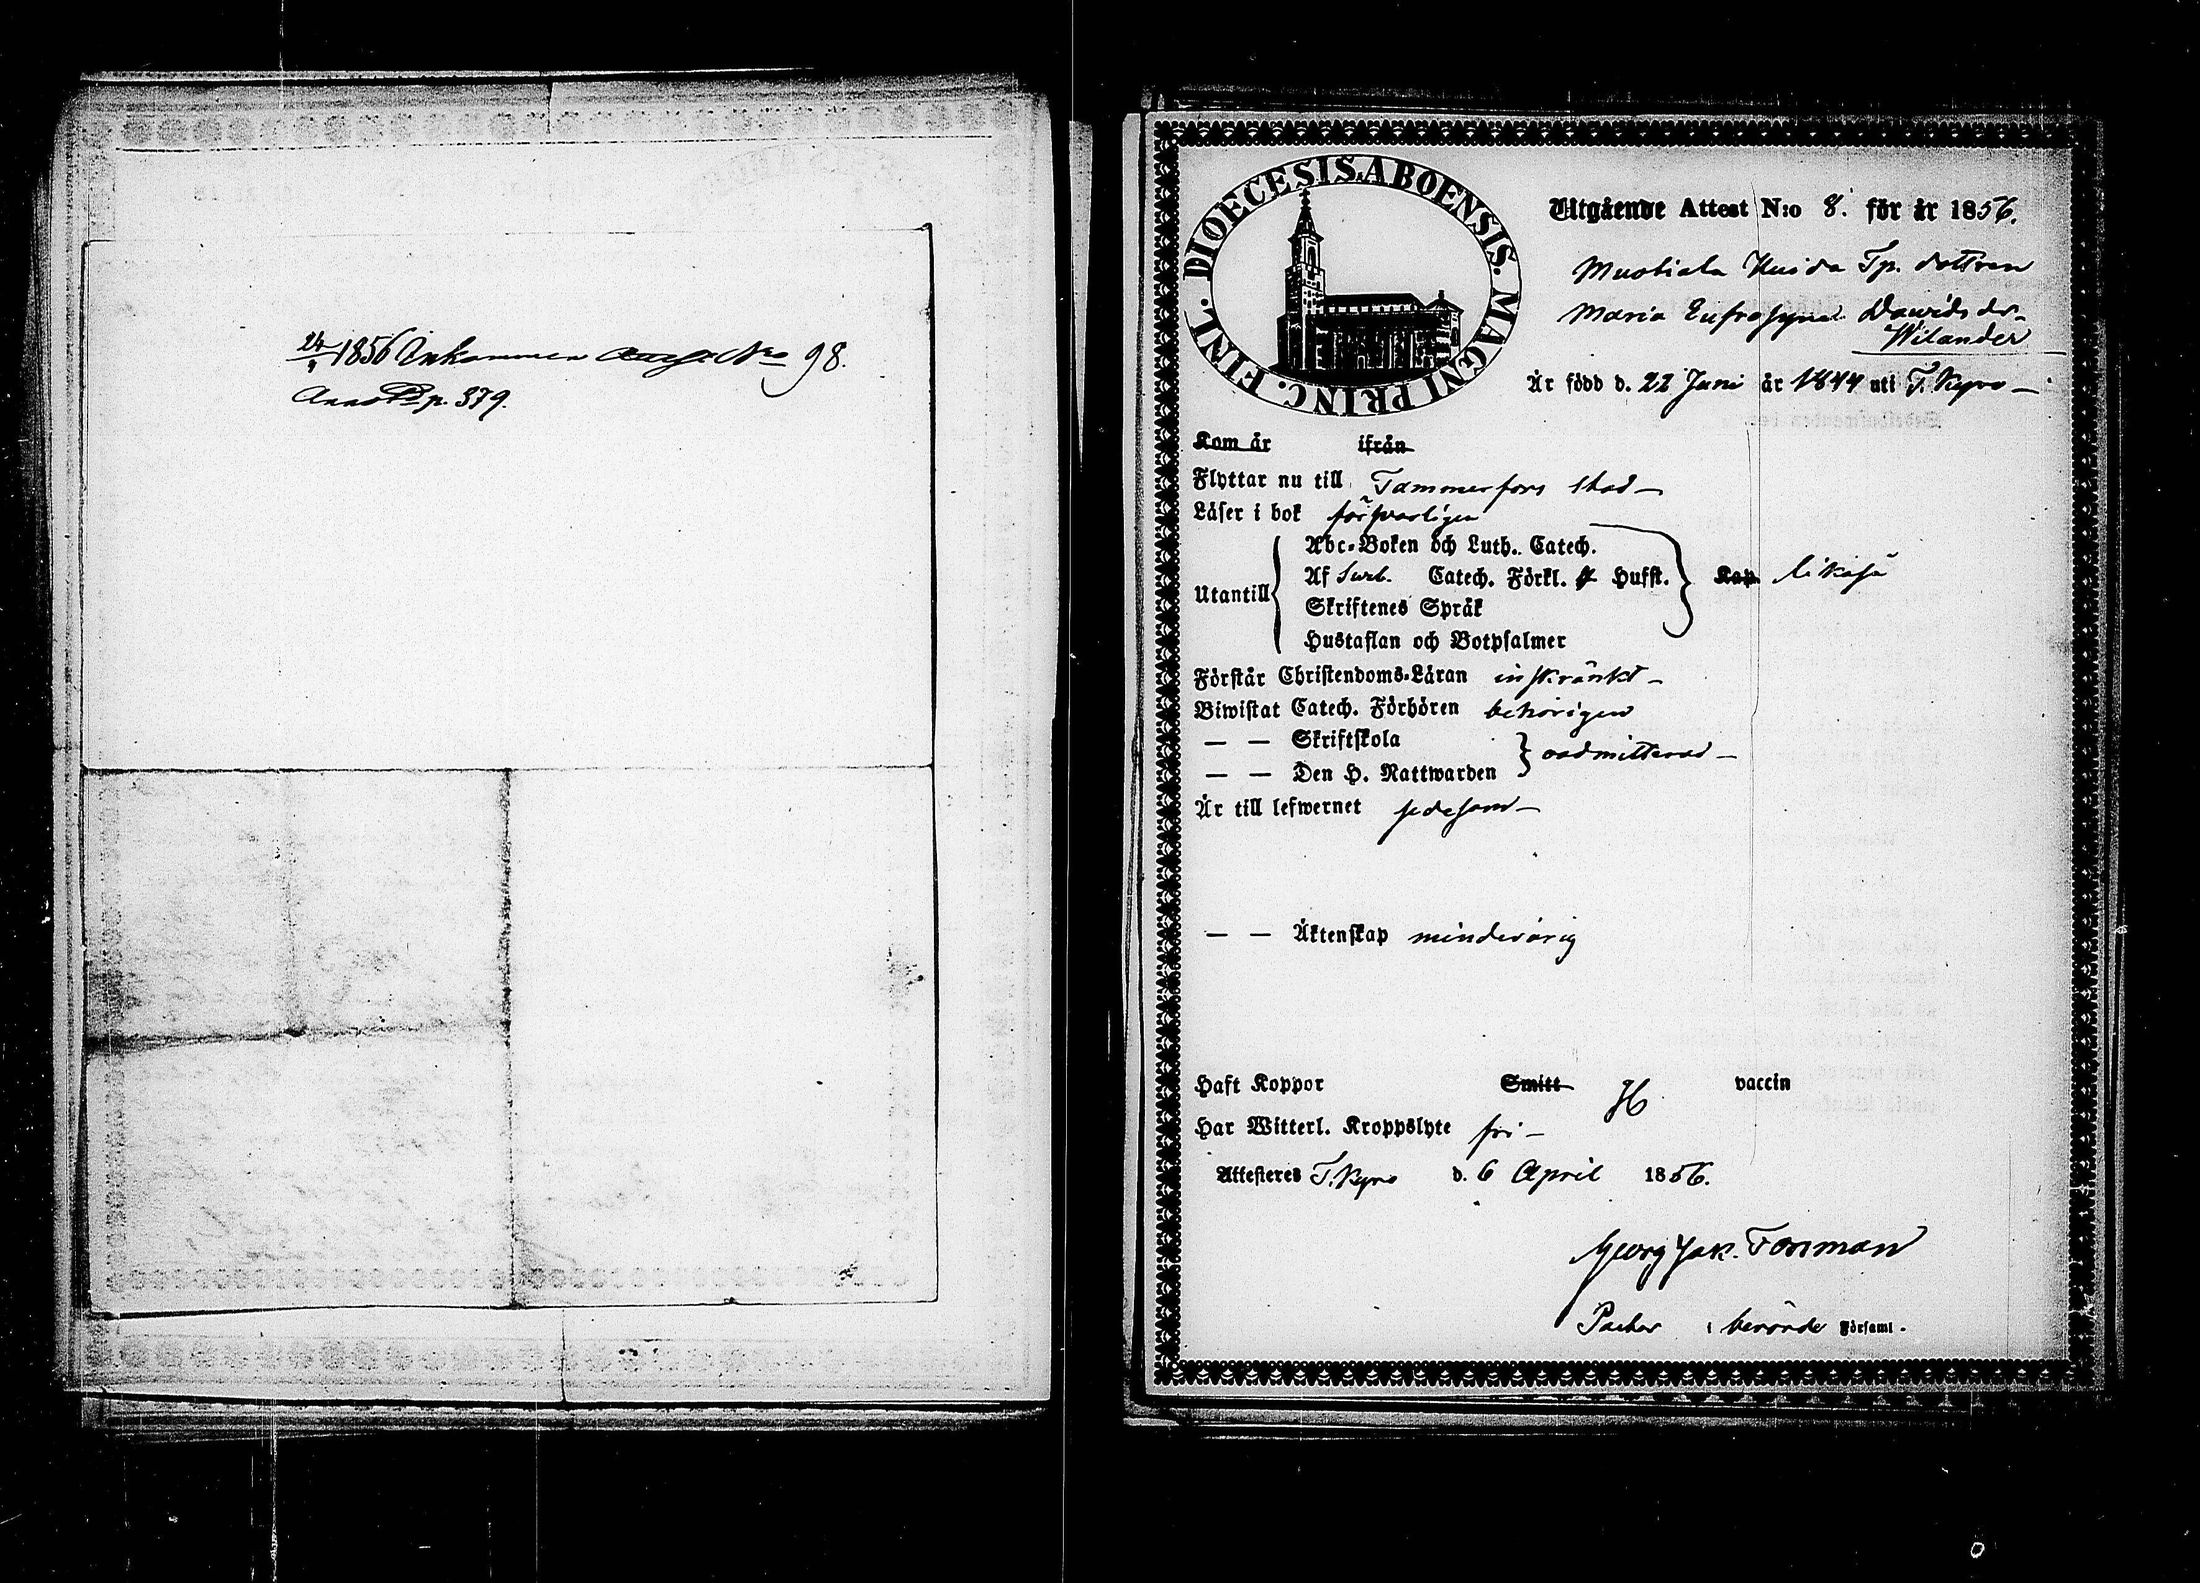 24/9 1856 Inkommen Attest No 98.
Anno p. 379.
DIOECESIS ABOENSIS. MAGNI PRINC. FINL.
Utgående Attest N:o 8. för år 1856.
Muotiala Huida Tp. dottren
Maria Eufrosyna Dawidsdr.
Wilander
Är född d. 22 Juni år 1844 uti T. Kyro —
Kom år ifrån
Flyttar nu till Tammerfors stad —
Läser i bok försvarligen
Utantill
Abc-Boken och Luth. Catech.
Af Sveb. Catech. Förkl. Hufst.
Skriftenes Språk
Hustaflan och Botpsalmer
Kap. likaså
Förstår Christendoms-Läran inskränkt —
Biwistat Catech. Förhören behörigen
— — Skriftskola
— — Den H. Nattwarden
oadmitterad —
Är till lefwernet sedesam —
— — Äktenskap minderårig
Haft Koppor Smitt vaccin
Har Witterl. Kroppslyte fri —
Attesteres T. Kyro d. 6 April 1856.
Georg Jak. Forsman
Pastor i berörde Församl.